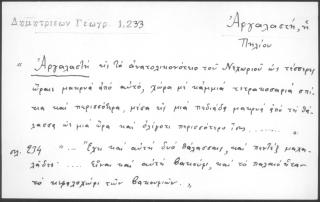 Δημητριέων Γεωγρ. 1,233
Ἀργαλαστή, ἡ
Πηλίου
"Ἀργαλαστή εἰς τὸ ἀνατολικονότιο τοῦ Νεχωριοῦ ὡς τέσσερες
ὥραις μακρυὰ ἀπὸ αὐτό, χώρα μὲ κάμμια τετρακοσαριὰ σπί-
τια καὶ περισσότερα, μέσα εἰς μιὰ πεδιάδα μακρυὰ ἀπὸ τὴ θά-
λασσα ὡς μιὰ ὥρα καὶ ὀλίγοτε περισσότερο ἴσως ........ "
σελ. 234 "... Ἔχει καὶ αὐτὴ δυὸ θάλασσαις, καὶ πέντ' ἓξ μαχα-
λάδες .... Εἶναι καὶ αὐτὴ βακούφι, καὶ τὸ παλαιὸ ἦταν
τὸ κεφαλοχώρι τῶν βακουφιῶν."